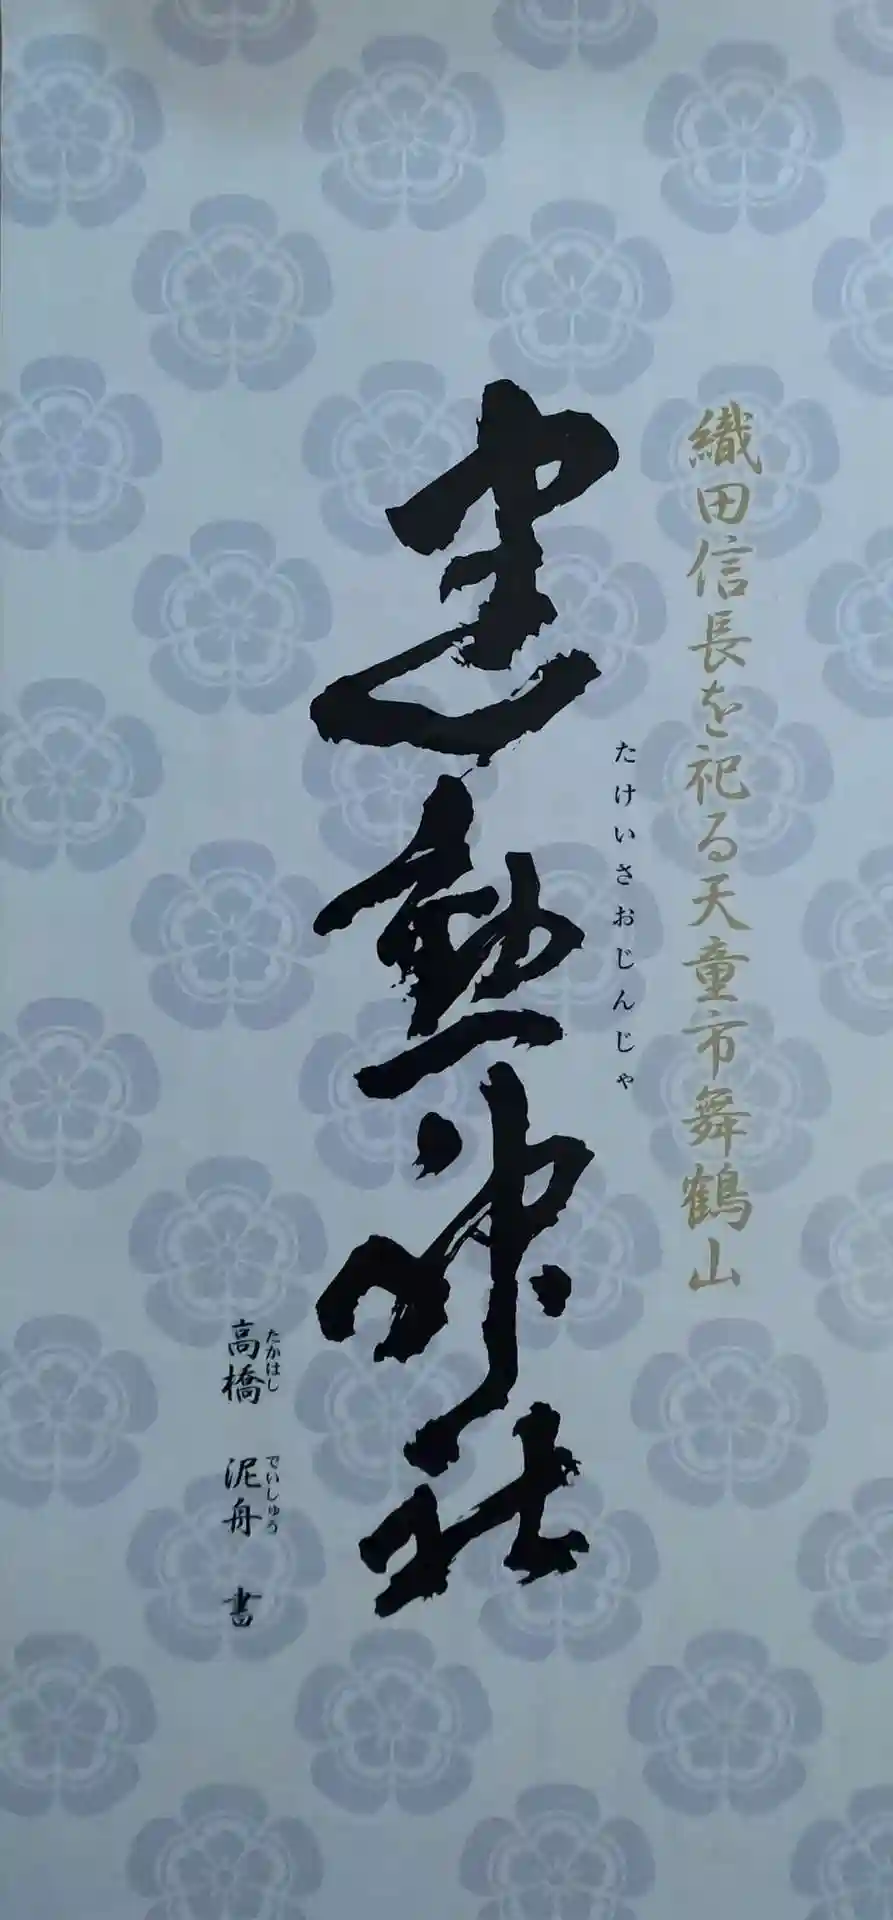 織田信長を祀る天童市舞鶴山
たけいさおじんじゃ
建勲神社
たかはし でいしゅう
高橋 泥舟 書